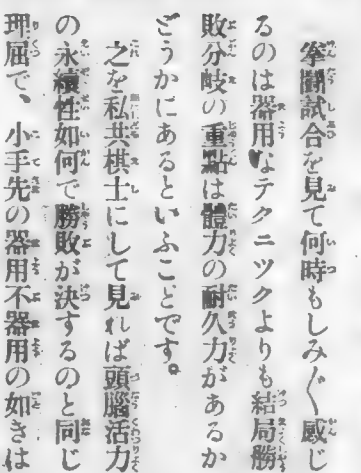 拳鬪試合を見て何時もしみ〴〵感じ
るのは器用なテクニツクよりも結局勝
敗分岐の重點は體力の耐久力があるか
どうかにあるといふことです。
之を私共棋士にして見れば頭腦活力
の永續性如何で勝敗が決するのと同じ
理屈で、小手先の器用不器用の如きは